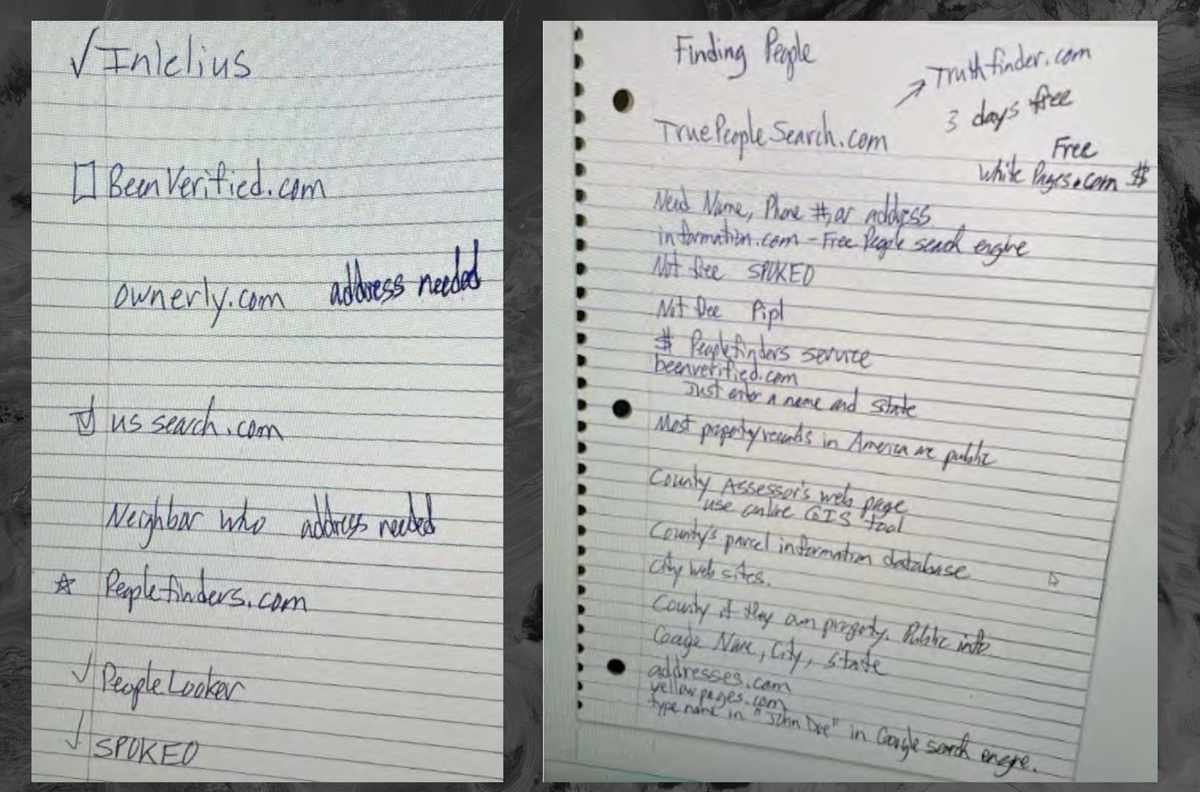 ✓ Intelius
☐ BeenVerified.com
ownerly.com address needed
☑ us search.com
Neighbor who address needed
☆ Peoplefinders.com
✓ PeopleLooker
✓ SPOKEO
Finding People
→ Truthfinder.com
3 days free
TruePeopleSearch.com
Free
White Pages.com $
Need Name, Phone #, or address
information.com - Free People search engine
Not free SPOKEO
Not free Pipl
$ Peoplefinders service
beenverified.com
Just enter a name and state
Most property records in America are public
County Assessor's web page
use online GIS tool
County's parcel information database
City web sites.
County if they own property. Public info
Google Name, City, State
addresses.com
yellowpages.com
type name in "John Doe" in Google search engine.